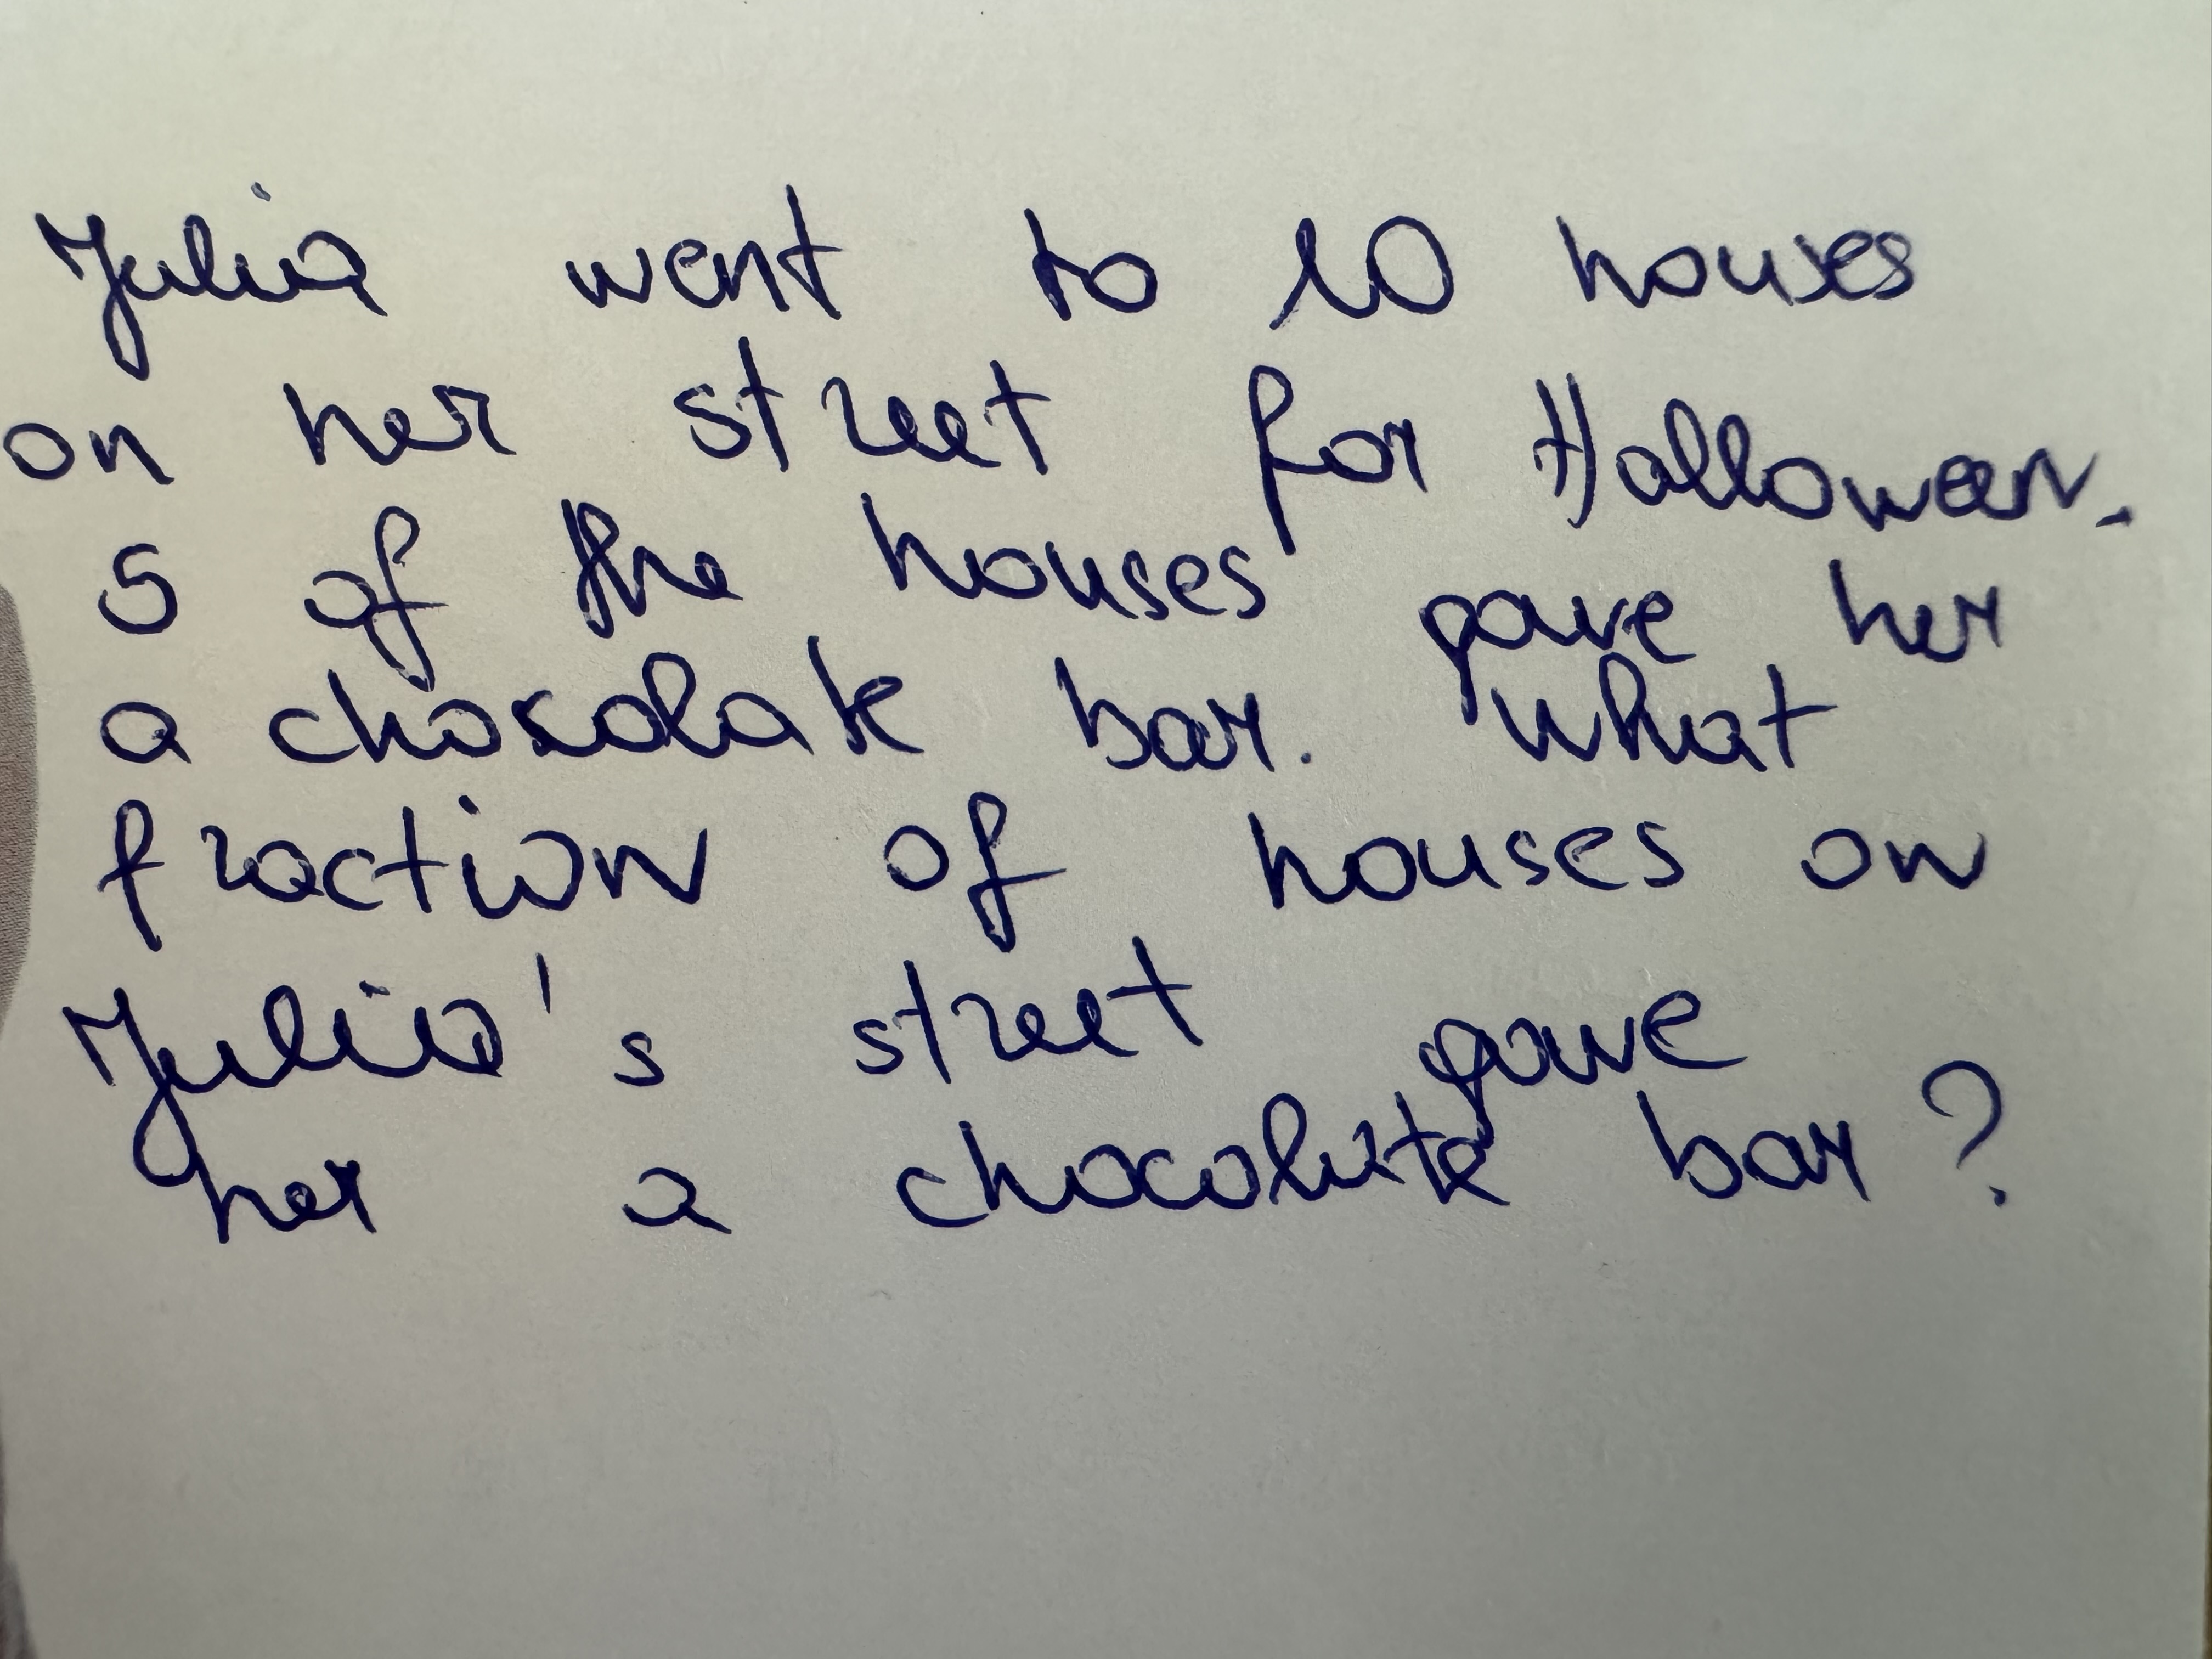 Julia went to 10 houses
on her street for Halloween.
5 of the houses gave her
a chocolate bar. What
fraction of houses on
Julia's street gave
her a chocolate bar?